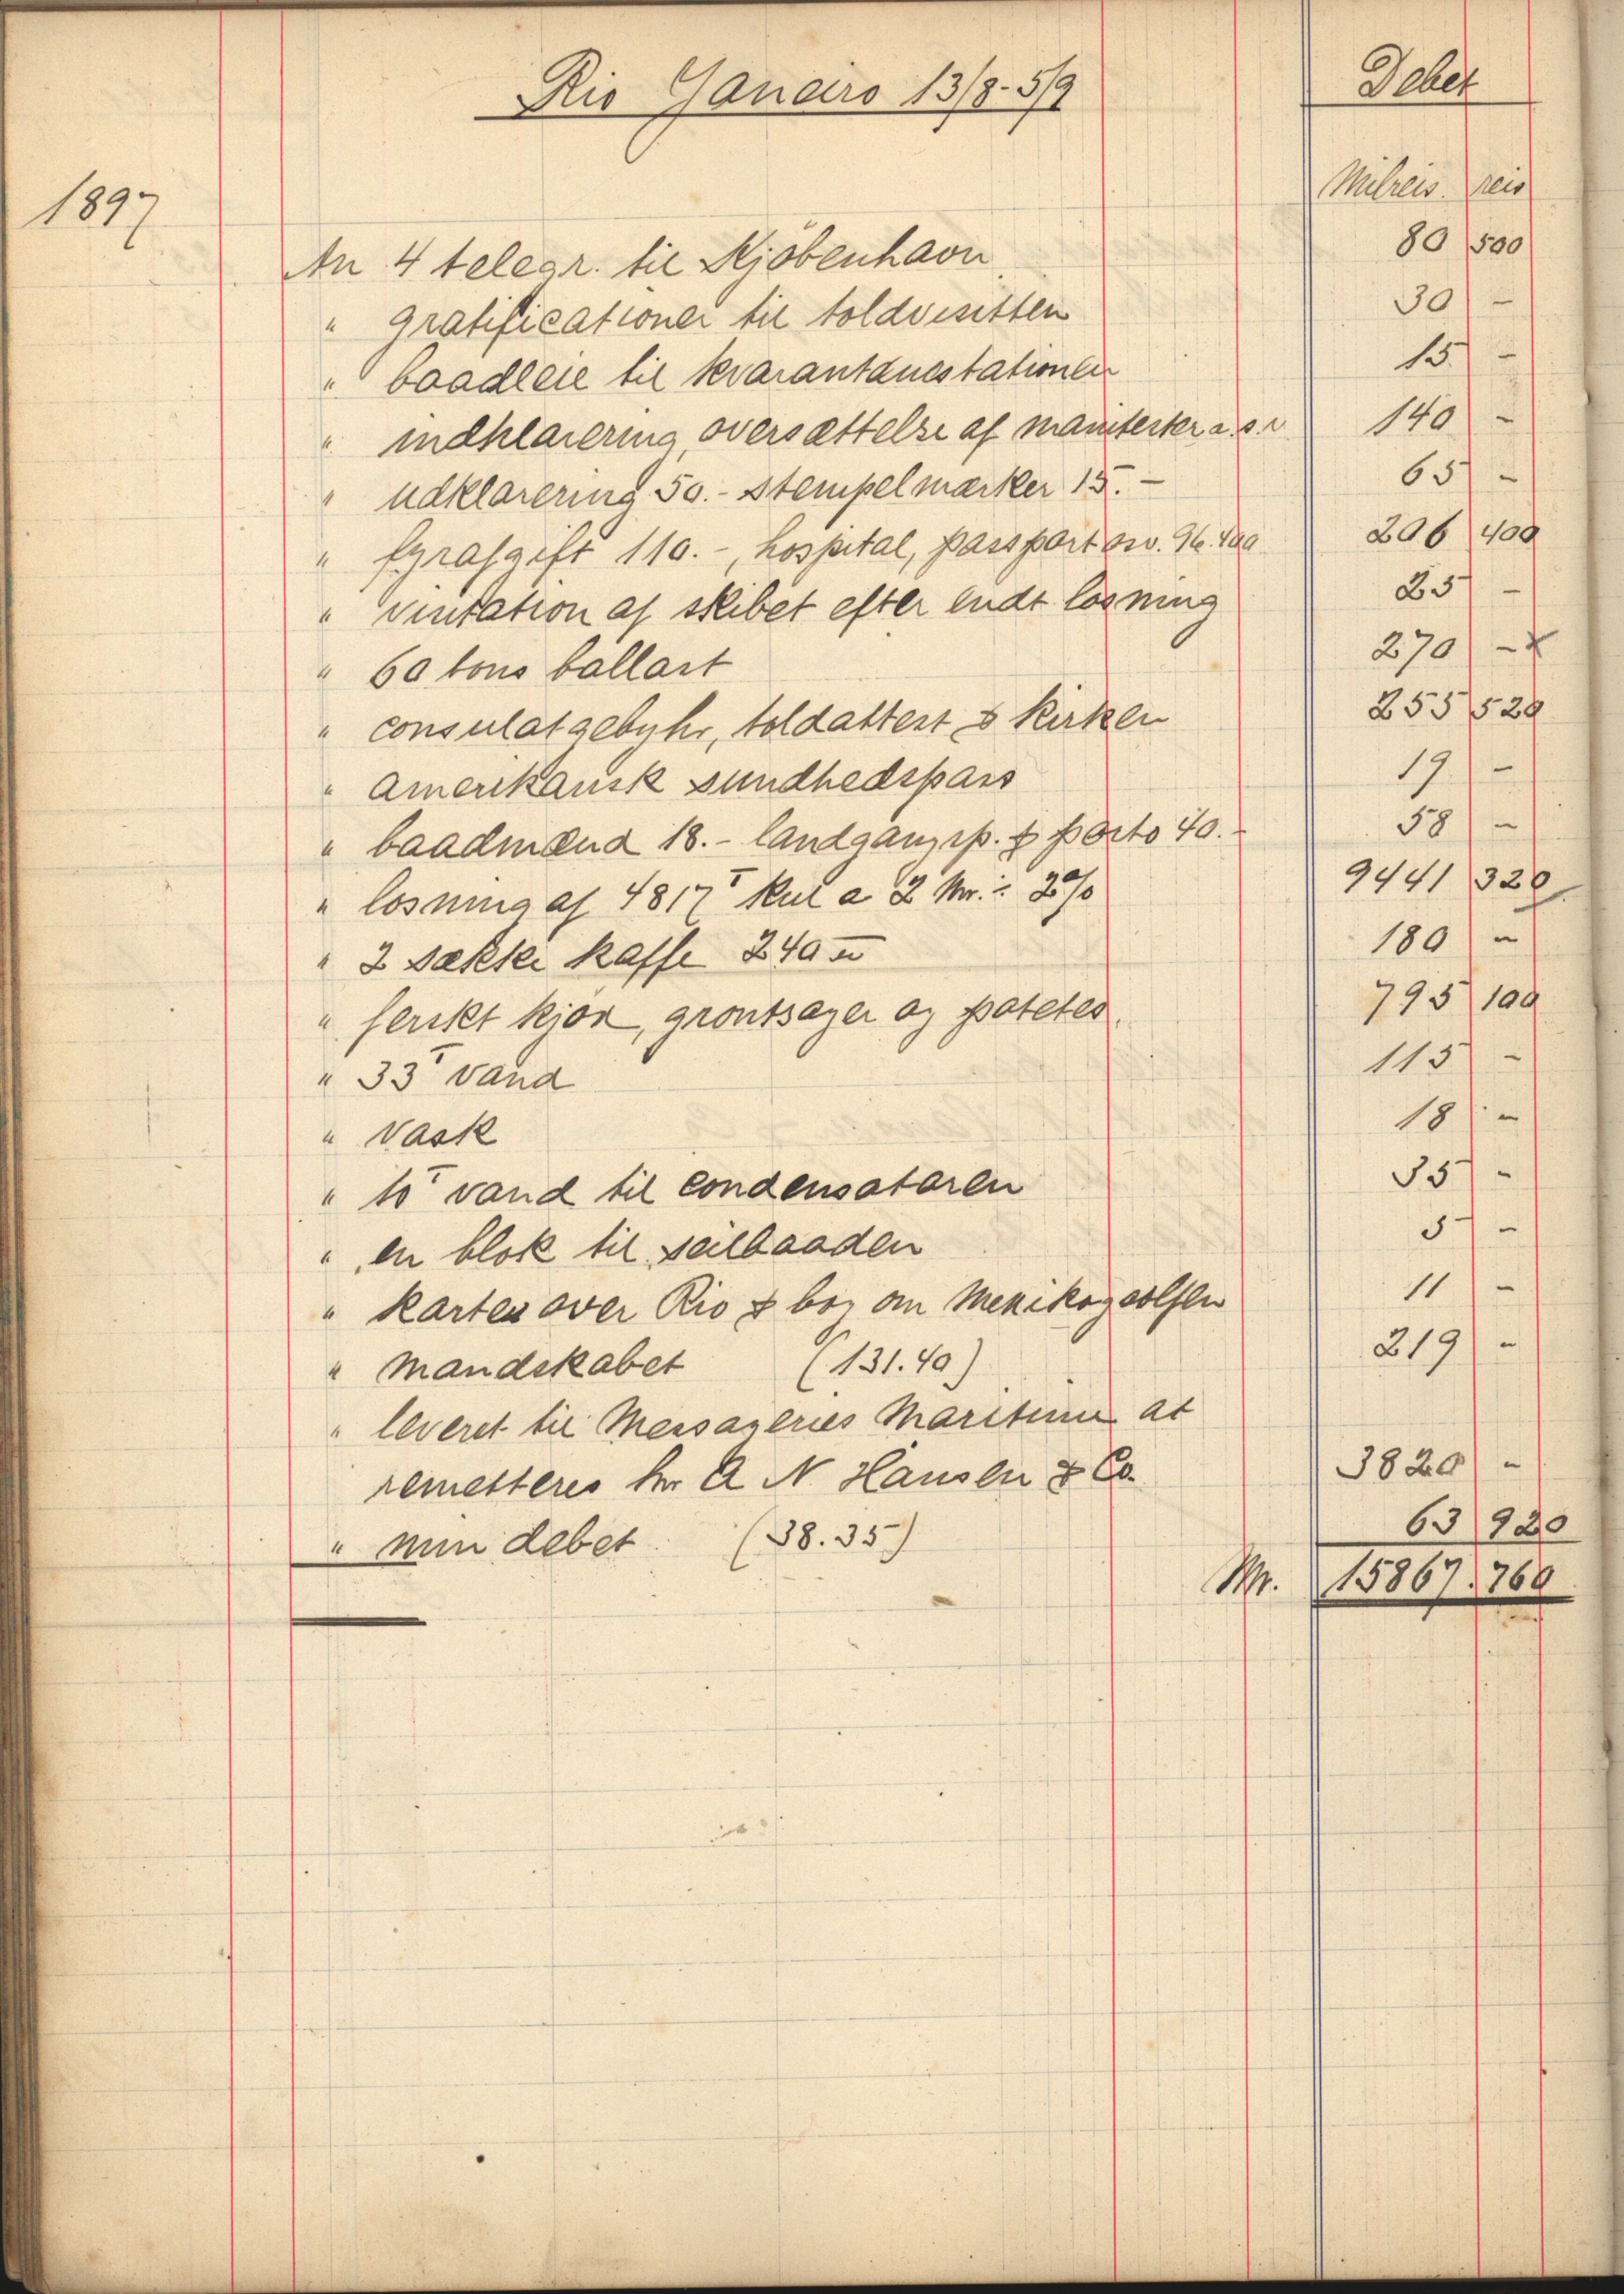 Rio Janeiro 13/8 - 5/9
Debet
1897
Milreis. reis
An 4 telegr. til Kjöbenhavn 80 500
" gratificationer til toldvisitten 30 -
" baadleie til kvarantænestationen 15 -
" indklarering, oversættelse af manifester a.s.v 140 -
" udklarering 50.- stempelmærker 15.- 65 -
" fyrafgift 110.-, hospital, passport osv. 96.400 206 400
" visitation af skibet efter endt losning 25 -
" 60 tons ballast 270 - x
" consulatgebyhr, toldattest & kirken 255 520
" amerikansk sundhedspass 19 -
" baadmænd 18.- landgangsp. & porto 40.- 58 -
" losning af 4817 T kul a 2 Mr. ÷ 2% 9441 320
" 2 sække kaffe 240 180 -
" ferskt kjöd, grontsager og potetes. 795 100
" 33 T vand 115 -
" vask 18 -
" 10 T vand til condensatoren 35 -
" en blok til seilbaaden 5 -
" karter over Rio & bog om Mexikogoolfen 11 -
" mandskabet (131.40) 219 -
" leveret til Messageries Maritime at
remetteres hr A N Hansen & Co. 3820 -
" min debet (38.35) 63 920
Mr. 15867. 760